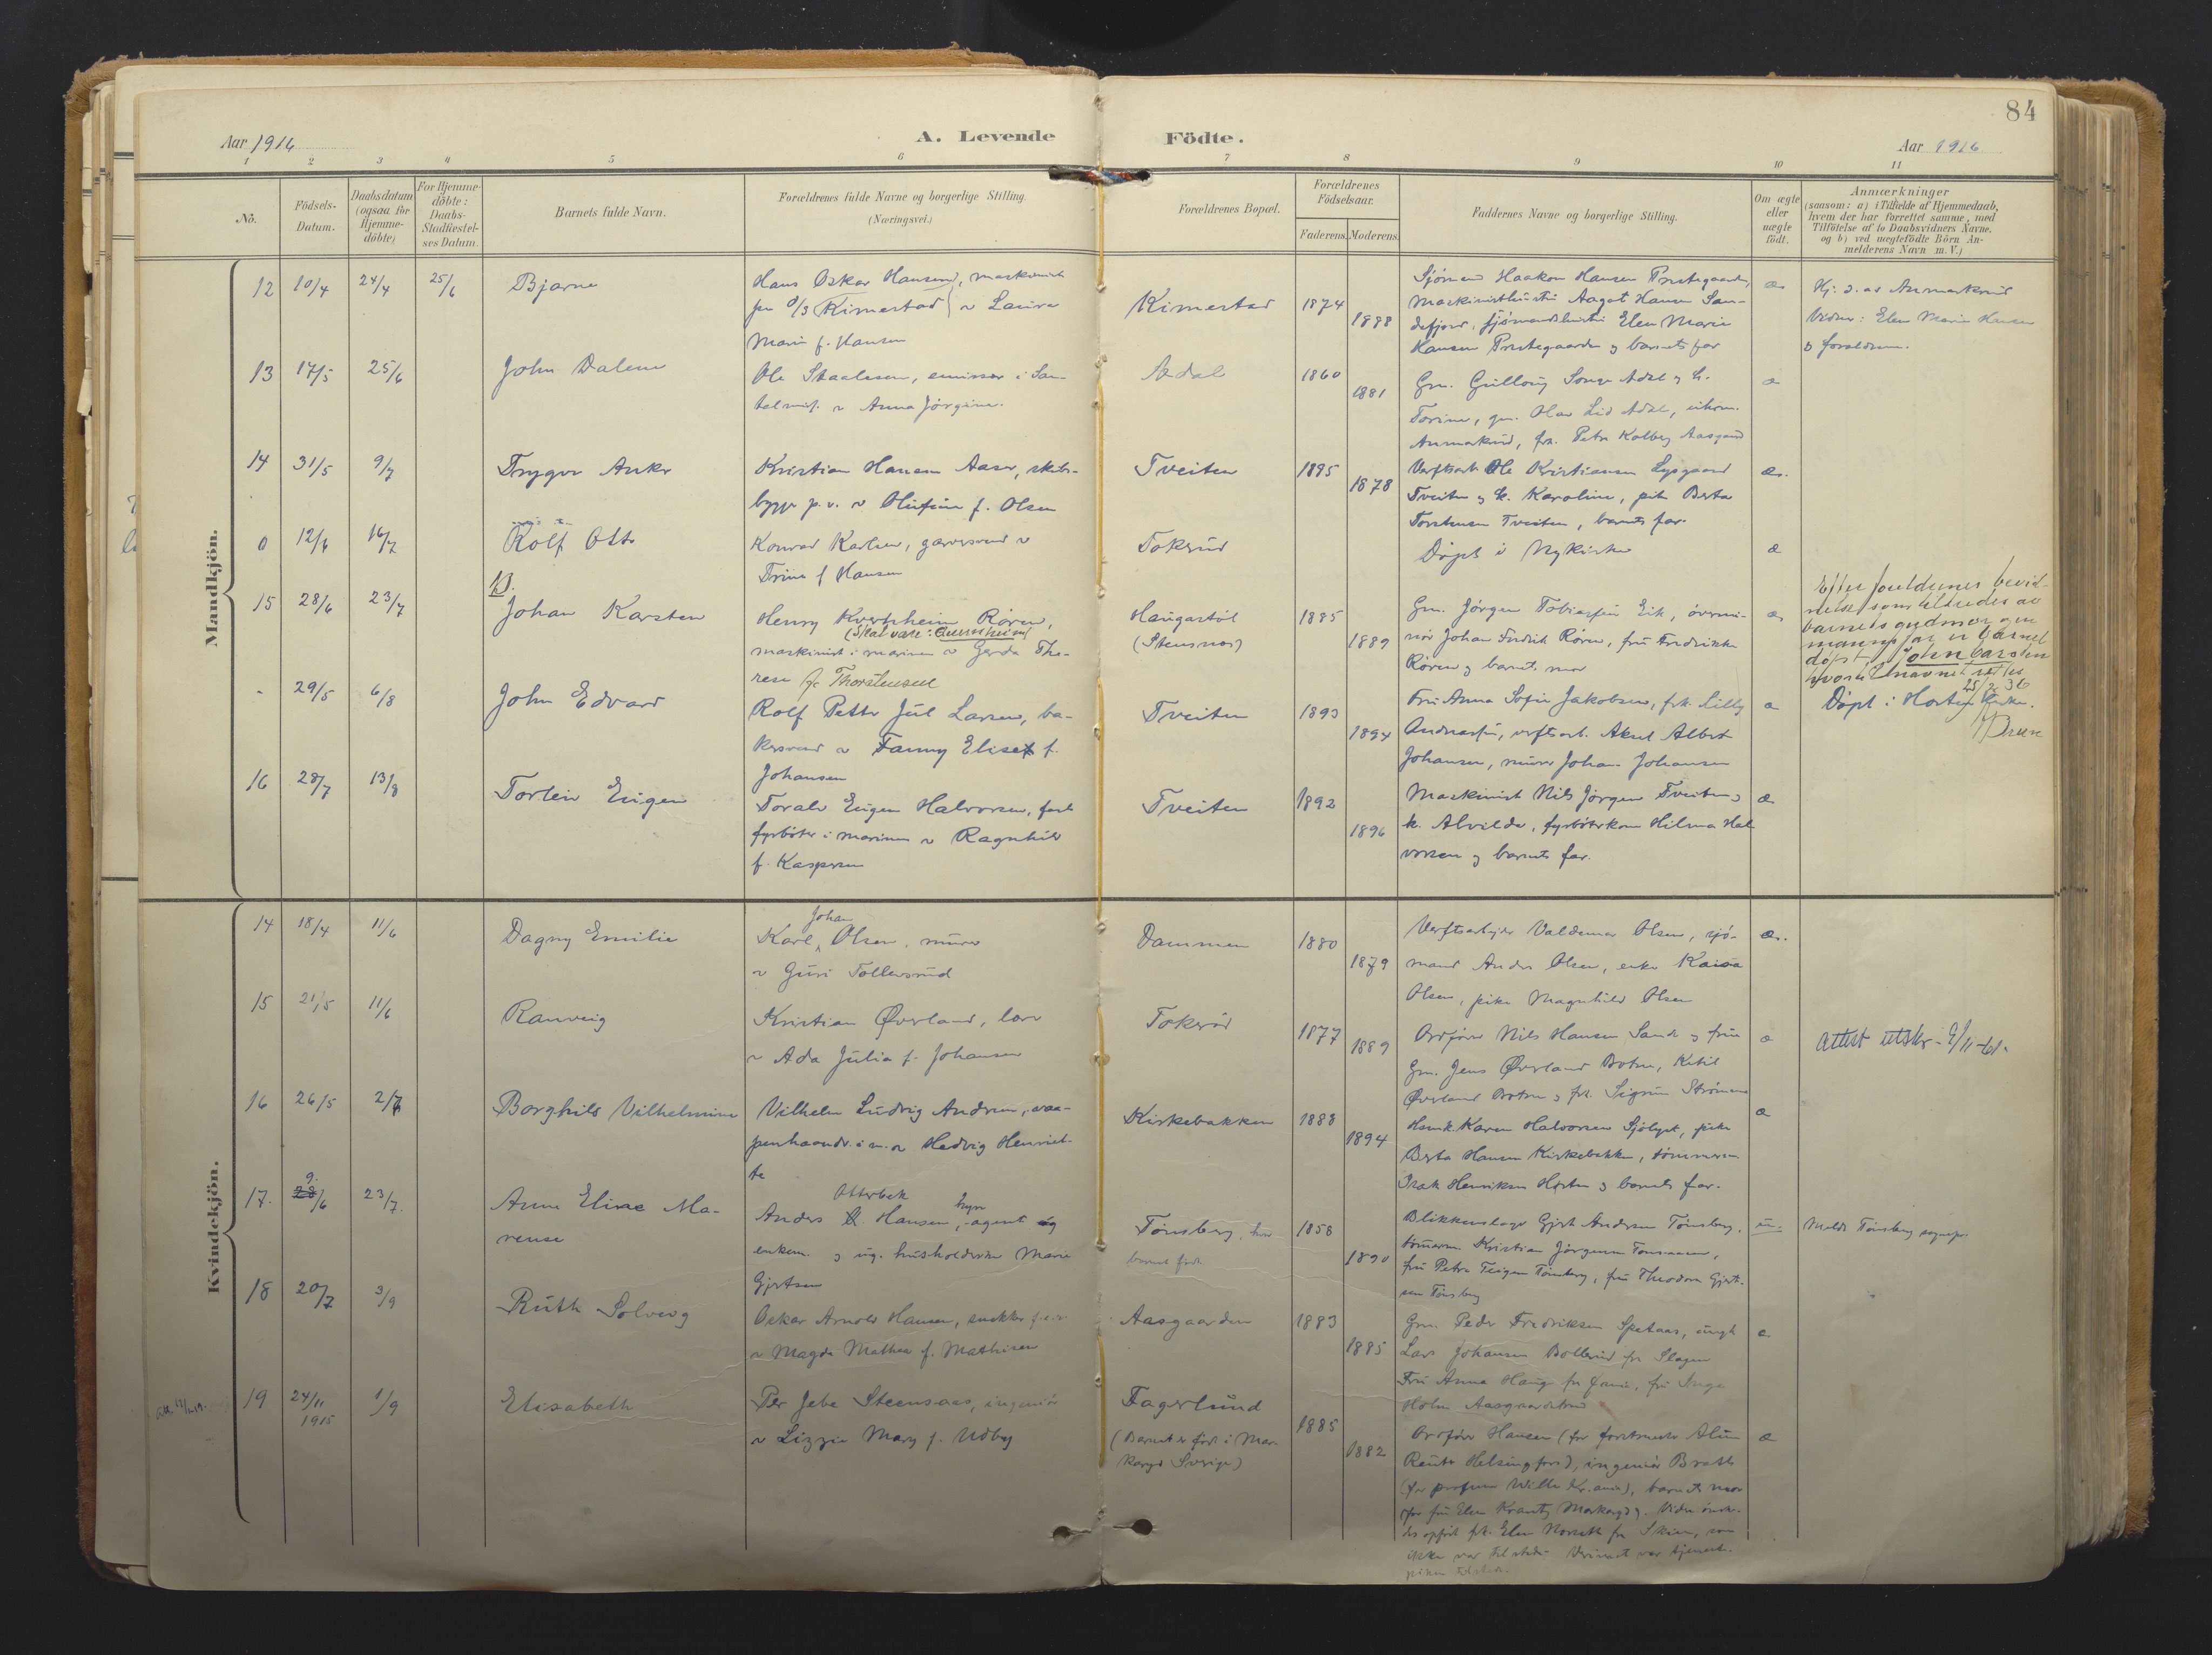 84
Aar 1916
A. Levende Födte.
Aar 1916
1 2 3 4 5 6 7 8 9 10 11
No.
Födsels-Datum.
Daabsdatum (ogsaa for Hjemme-döbte)
For Hjemme-döbte: Daabs-Stadfæstel-ses Datum.
Barnets fulde Navn.
Forældrenes fulde Navne og borgerlige Stilling.
(Næringsvei.)
Forældrenes Bopæl.
Forældrenes Födselsaar.
Faderens. Moderens.
Faddernes Navne og borgerlige Stilling.
Om ægte eller uægte födt.
Anmærkninger
(saasom: a) i Tilfælde af Hjemmedaab,
hvem der har forrettet samme, med
Tilföielse af to Daabsvidners Navne.
og b) ved uægtefödte Börn An-
melderens Navn m.V.)
Mandkjön.
12 10/4 24/4 25/6 Bjarne
Hans Oskar Hansen, maskinist
paa D/S Kimestad n Laura
Marie f. Hansen
Kimestad 1874 1888
Sjømand Haakon Hansen Prestegaarden,
Maskinisthustru Aagot Hansen San-
defjord, sjømandshustru Elen Marie
Hansen Prestegaarden og barnets far
æ
Vidner: Elen Marie Hansen
og forældrene.
13 17/5 25/6 John Dalene
Ole Staalesen, emissær i San-
talmis. n Anna Jörgine.
Adal 1860 1881
Torine, gm. Olav Lid Adal,
frk. Petra Kolberg Aasgaard
æ
14 31/5 9/7 Trygve Anker
Kristian Hansen Aaser, skibs-
bygger p.v. n Olufine f. Olsen
Tveiten 1895 1878
Verftsarb Ole Kristiansen Lysgaard
Tveiten og h. Karoline, pike Berta
Torstensen Tveiten, barnets far.
æ.
0 12/6 16/7 Rolf Otto
Konrad Karlsen, garversvend n
Trine f Hansen
Tokerud
Döpt i Nykirke
æ
15 28/6 23/7 Johan Karsten
Henry Kvernheim Rören,
(Skal være: Qvernheim)
maskinist i marinen n Gerda The-
rese f. Thorstensen
Haugastöl
(Stensnes)
1885 1889
Gm. Jörgen Tobiassen Eik,
Johan Fredrik Rören, fru Fredrikke
Rören og barnets mor
æ
Efter foreldrenes bevid-
nelse som tiltredes av
barnets gudmor gm
er barnet
döpt John Carsten
hvorfor navnet rettes
25/2 36
Bruun
- 29/5 6/8 John Edvard
Rolf Petter Jul Larsen, ba-
kersvend n Fanny Eliset f.
Johansen
Tveiten 1893 1894
Fru Anna Sofie Jakobsen, frk. Lilly
Andreassen, verftsarb. Aksel Albert
Johansen, murer Johan Johansen
æ
Döpt i Horten kirke.
16 28/7 13/8 Torleiv Eugen
Toralv Eugen Halvorsen, fast
fyrböter i marinen n Ragnhild
f. Kaspersen
Tveiten 1892 1896
Maskinist Nils Jörgen Tveiten og
h. Alvilde, fyrböterkone Hilma Hal
vorsen og barnets far.
æ
Kvindekjön.
14 18/4 11/6 Dagny Emilie
Karl Johan Olsen, murer
n Guri Tollersrud
Dammen 1880 1879
Verftsarbejder Valdemar Olsen, sjö-
mand Anders Olsen, enke Kaisa
Olsen, pike Magnhild Olsen
æ.
15 21/5 11/6 Ranveig
Kristian Øverland, lærer
n Ada Julia f. Johansen
Tokeröd 1877 1889
Ordförer Nils Hansen Sande og frue
Gm. Jens Øverland Botne, Ketil
Øverland Botne og frk. Sigrun Strömme
æ
Attest utskr. 9/11-61.
16 26/5 2/7 Borghild Vilhelmine
Vilhelm Ludvig Andresen, vaa-
penhaandv. i m. n Hedvig Henriet-
te
Kirkebakken 1888 1894
Karen Halvorsen Sjölyst, pike
Berta Hansen Kirkebakken, tömmerm.
Isak Henriksen Horten og barnets far.
æ
17. 9/6 23/7. Anne Elise Ma-
rense
Anders Otterbek Hansen, hyre-agent og
enkem. og ug. husholderske Marie
Gjertsen
Tönsberg, hvor
barnet födt.
1858 1890
Blikkenslager Gjert Andersen Tönsberg,
tömmerm Kristian Jörgensen
fru Petra Teigen Tönsberg, fru Theodora Gjert-
sen Tönsberg
u.
Meldt Tönsberg sognepr.
18 20/7 3/9 Ruth Solveig
Oskar Arnold Hansen, snekker
n Magda Mathea f. Mathisen
Aasgaarden 1883 1885
Gm. Peder Fredriksen Spetaas, ungk
Lars Johansen Bollerud fra Slagen
Fru Anna Haug fra
Holm Aasgaardstrand
æ
19 24/11 1915 1/9 Elisabeth
Per Jebe Steensaas, ingeniör
n Lizzie Mary f. Udbye
Fagerlund
(Barnet er född i Mar-
karyd Sverige)
1885 1882
Ordförer Hansen (for
Helsingfors), ingeniör Brath
(for professor Wille Kr.ania), barnets mor
(for fru Elen Krantz Markaryd). Videre önsk-
des opfört frk. Elen Norseth fra Skien, som
ikke var tilstede.
æ